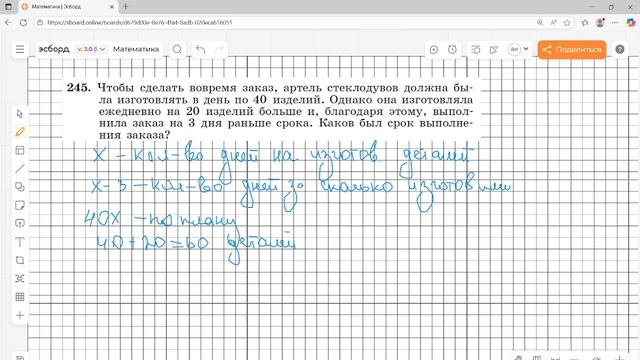 Математика | Эсборд
эсборд v. 3.0 β Математика
Поделиться
245. Чтобы сделать вовремя заказ, артель стеклодувов должна бы-
ла изготовлять в день по 40 изделий. Однако она изготовляла
ежедневно на 20 изделий больше и, благодаря этому, выпол-
нила заказ на 3 дня раньше срока. Каков был срок выполне-
ния заказа?
x – кол-во дней на изготов деталей
x-3 – кол-во дней за сколько изготовили
40x – по плану
40+20=60 деталей